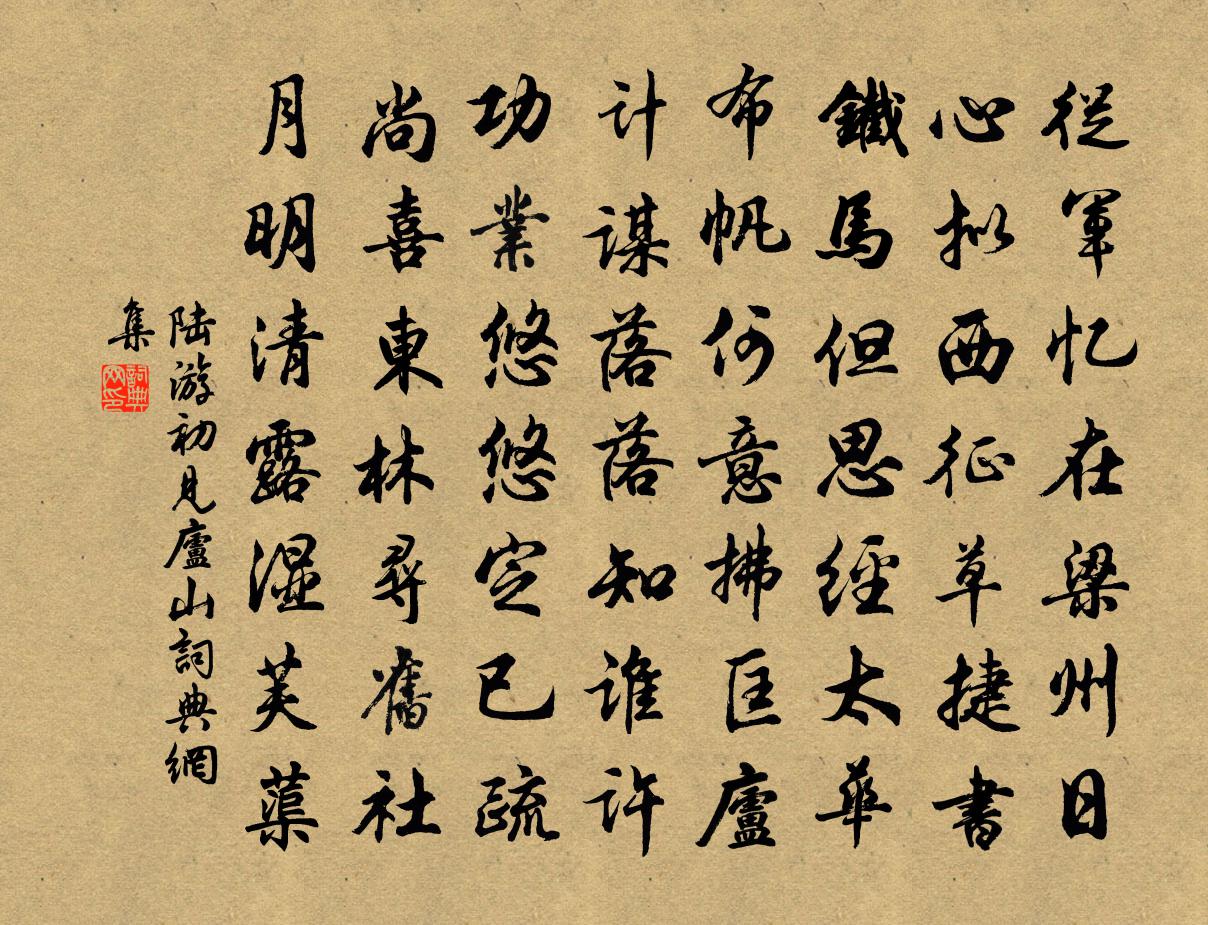 從軍忆在梁州日
心拟西征草捷書
鐵馬但思經太華
布帆何意拂匡廬
计謀落落知谁許
功業悠悠定已疏
尚喜東林尋舊社
月明清露湿芙蕖
陆游初見廬山詞典網
集
詞典网印